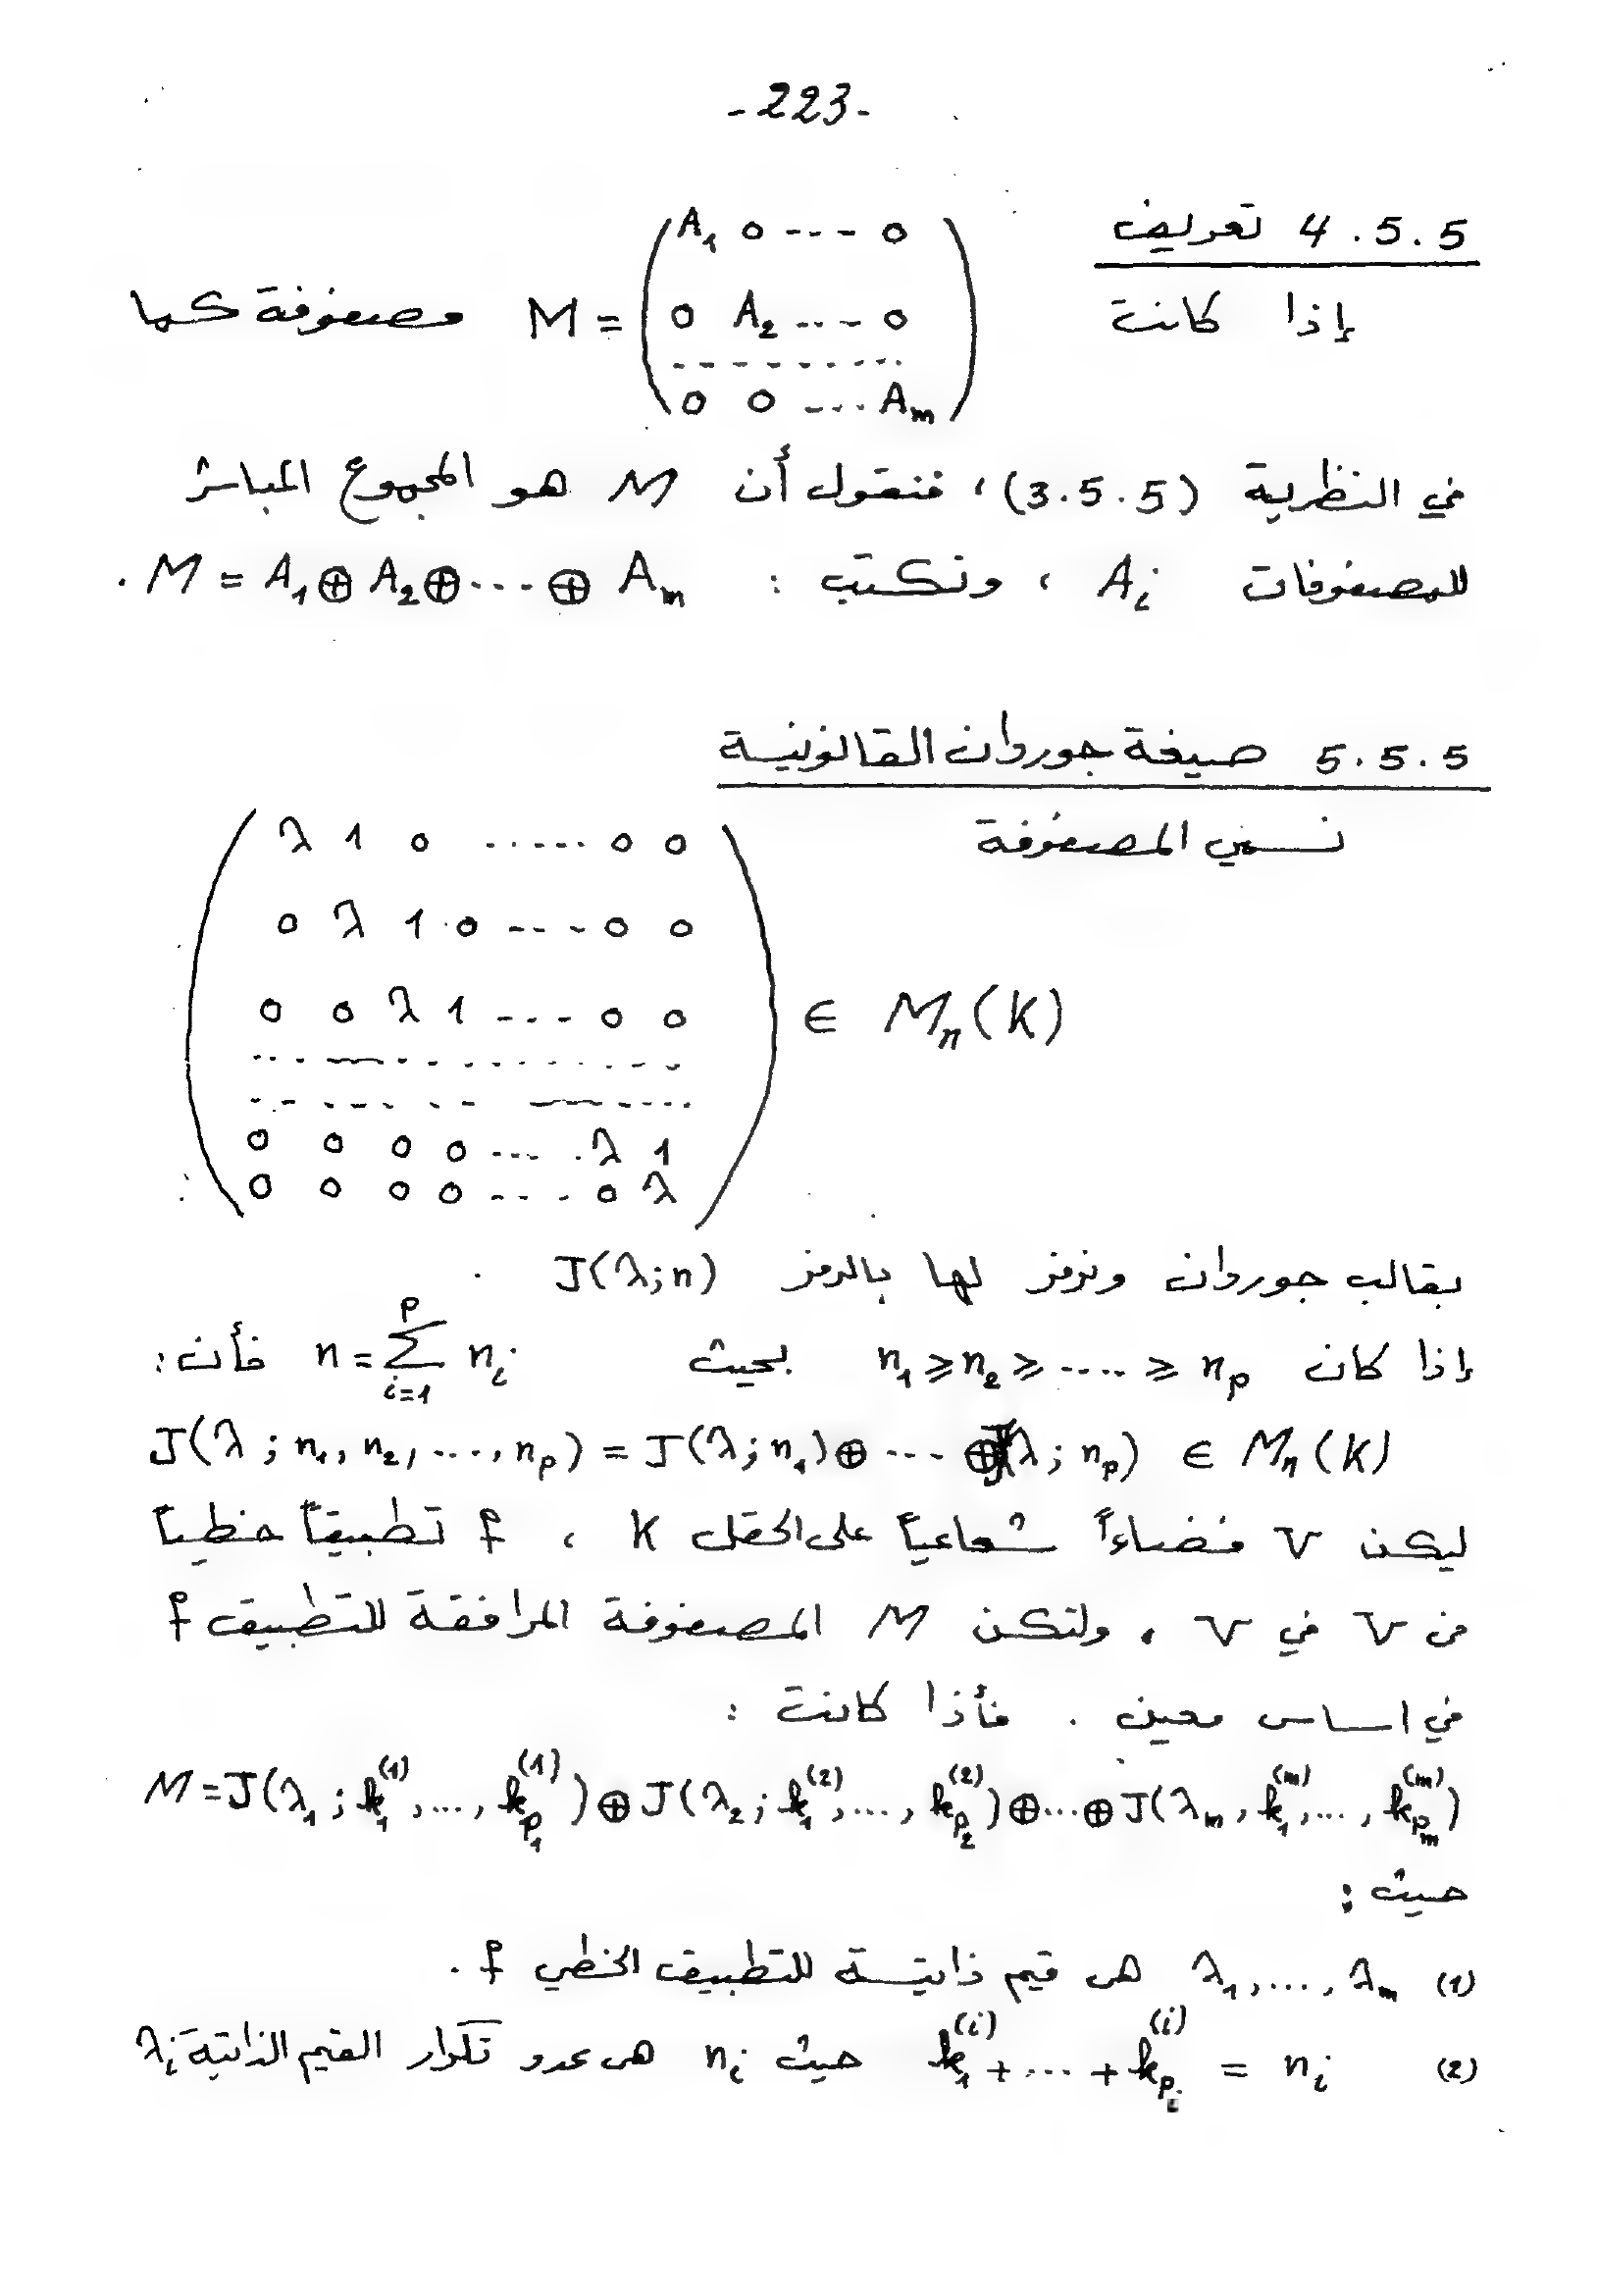 -223-
4.5.5 تعريف
إذا كانت M = ( A₁ 0 --- 0
0 A₂ ... 0
- - - - - - - -
0 0 ... Aₘ ) مصفوفة كما
في النظرية (3.5.5)، فنقول أن M هو المجموع المباشر
للمصفوفات Aᵢ ، ونكتب : M = A₁ ⊕ A₂ ⊕ ... ⊕ Aₘ .
5.5.5 صيغة جوردان القانونية
نسمي المصفوفة
( λ 1 0 ...... 0 0
0 λ 1 0 --- 0 0
0 0 λ 1 --- 0 0 ∈ Mₙ(K)
- - - - - - - - - -
- - - - - - - - - -
0 0 0 0 ... λ 1
0 0 0 0 ... 0 λ )
بقالب جوردان ونرمز لها بالرمز J(λ;n) .
إذا كان n₁ ⩾ n₂ ⩾ .... ⩾ n_p بحيث n = ∑_{i=1}^{p} nᵢ فأن :
J(λ; n₁, n₂, ..., n_p) = J(λ; n₁) ⊕ ... ⊕ J(λ; n_p) ∈ Mₙ(K)
ليكن V فضاءاً شعاعياً على الحقل K ، f تطبيقاً خطياً
من V في V ، ولتكن M المصفوفة المرافقة للتطبيق f
في اساس معين . فأذا كانت :
M = J(λ₁; k₁^{(1)}, ..., k_{p₁}^{(1)}) ⊕ J(λ₂; k₁^{(2)}, ..., k_{p₂}^{(2)}) ⊕ ... ⊕ J(λₘ, k₁^{(m)}, ..., k_{pₘ}^{(m)})
حيث :
(1) λ₁, ..., λₘ هى قيم ذاتية للتطبيق الخطي f .
(2) k₁^{(i)} + ... + k_{pᵢ}^{(i)} = nᵢ حيث nᵢ هى عدد تكرار القيم الذاتية λᵢ